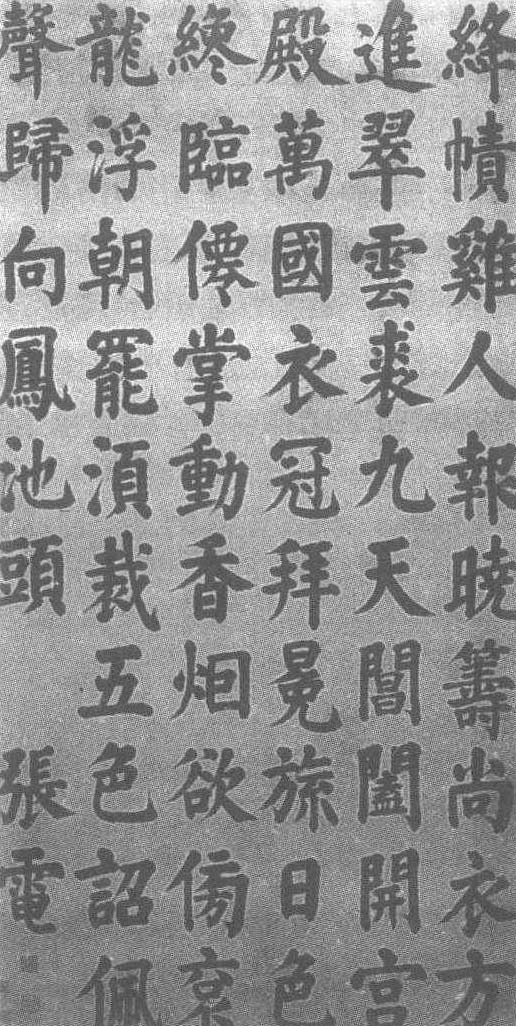 絳幘雞人報曉籌尚衣方
進翠雲裘九天閶闔開宮
殿萬國衣冠拜冕旒日色
纔臨僊掌動香烟欲傍袞
龍浮朝罷湏裁五色詔佩
聲歸向鳳池頭
張電